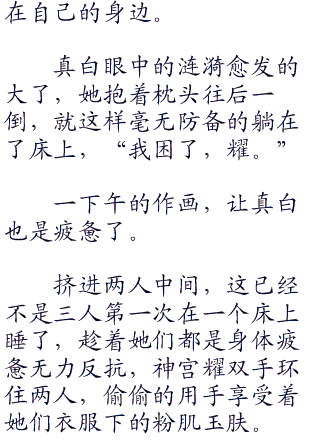 在自己的身边。
真白眼中的涟漪愈发的
大了，她抱着枕头往后一
倒，就这样毫无防备的躺在
了床上，“我困了，耀。”
一下午的作画，让真白
也是疲惫了。
挤进两人中间，这已经
不是三人第一次在一个床上
睡了，趁着她们都是身体疲
惫无力反抗，神宫耀双手环
住两人，偷偷的用手享受着
她们衣服下的粉肌玉肤。